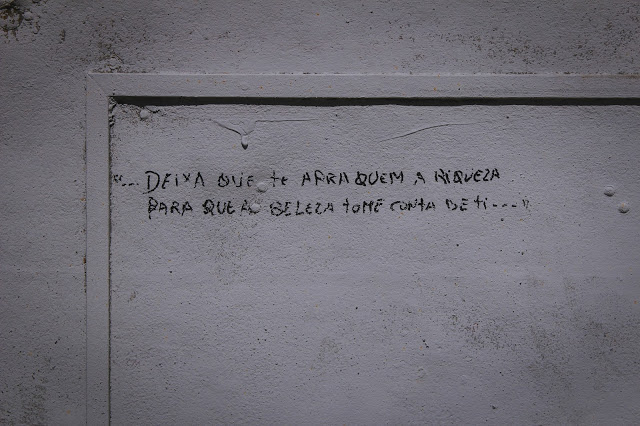 "... DEIXA QUE te ABRAQUEM A RIQUEZA
PARA QUE A BELEZA tOME CONTA DE ti..."